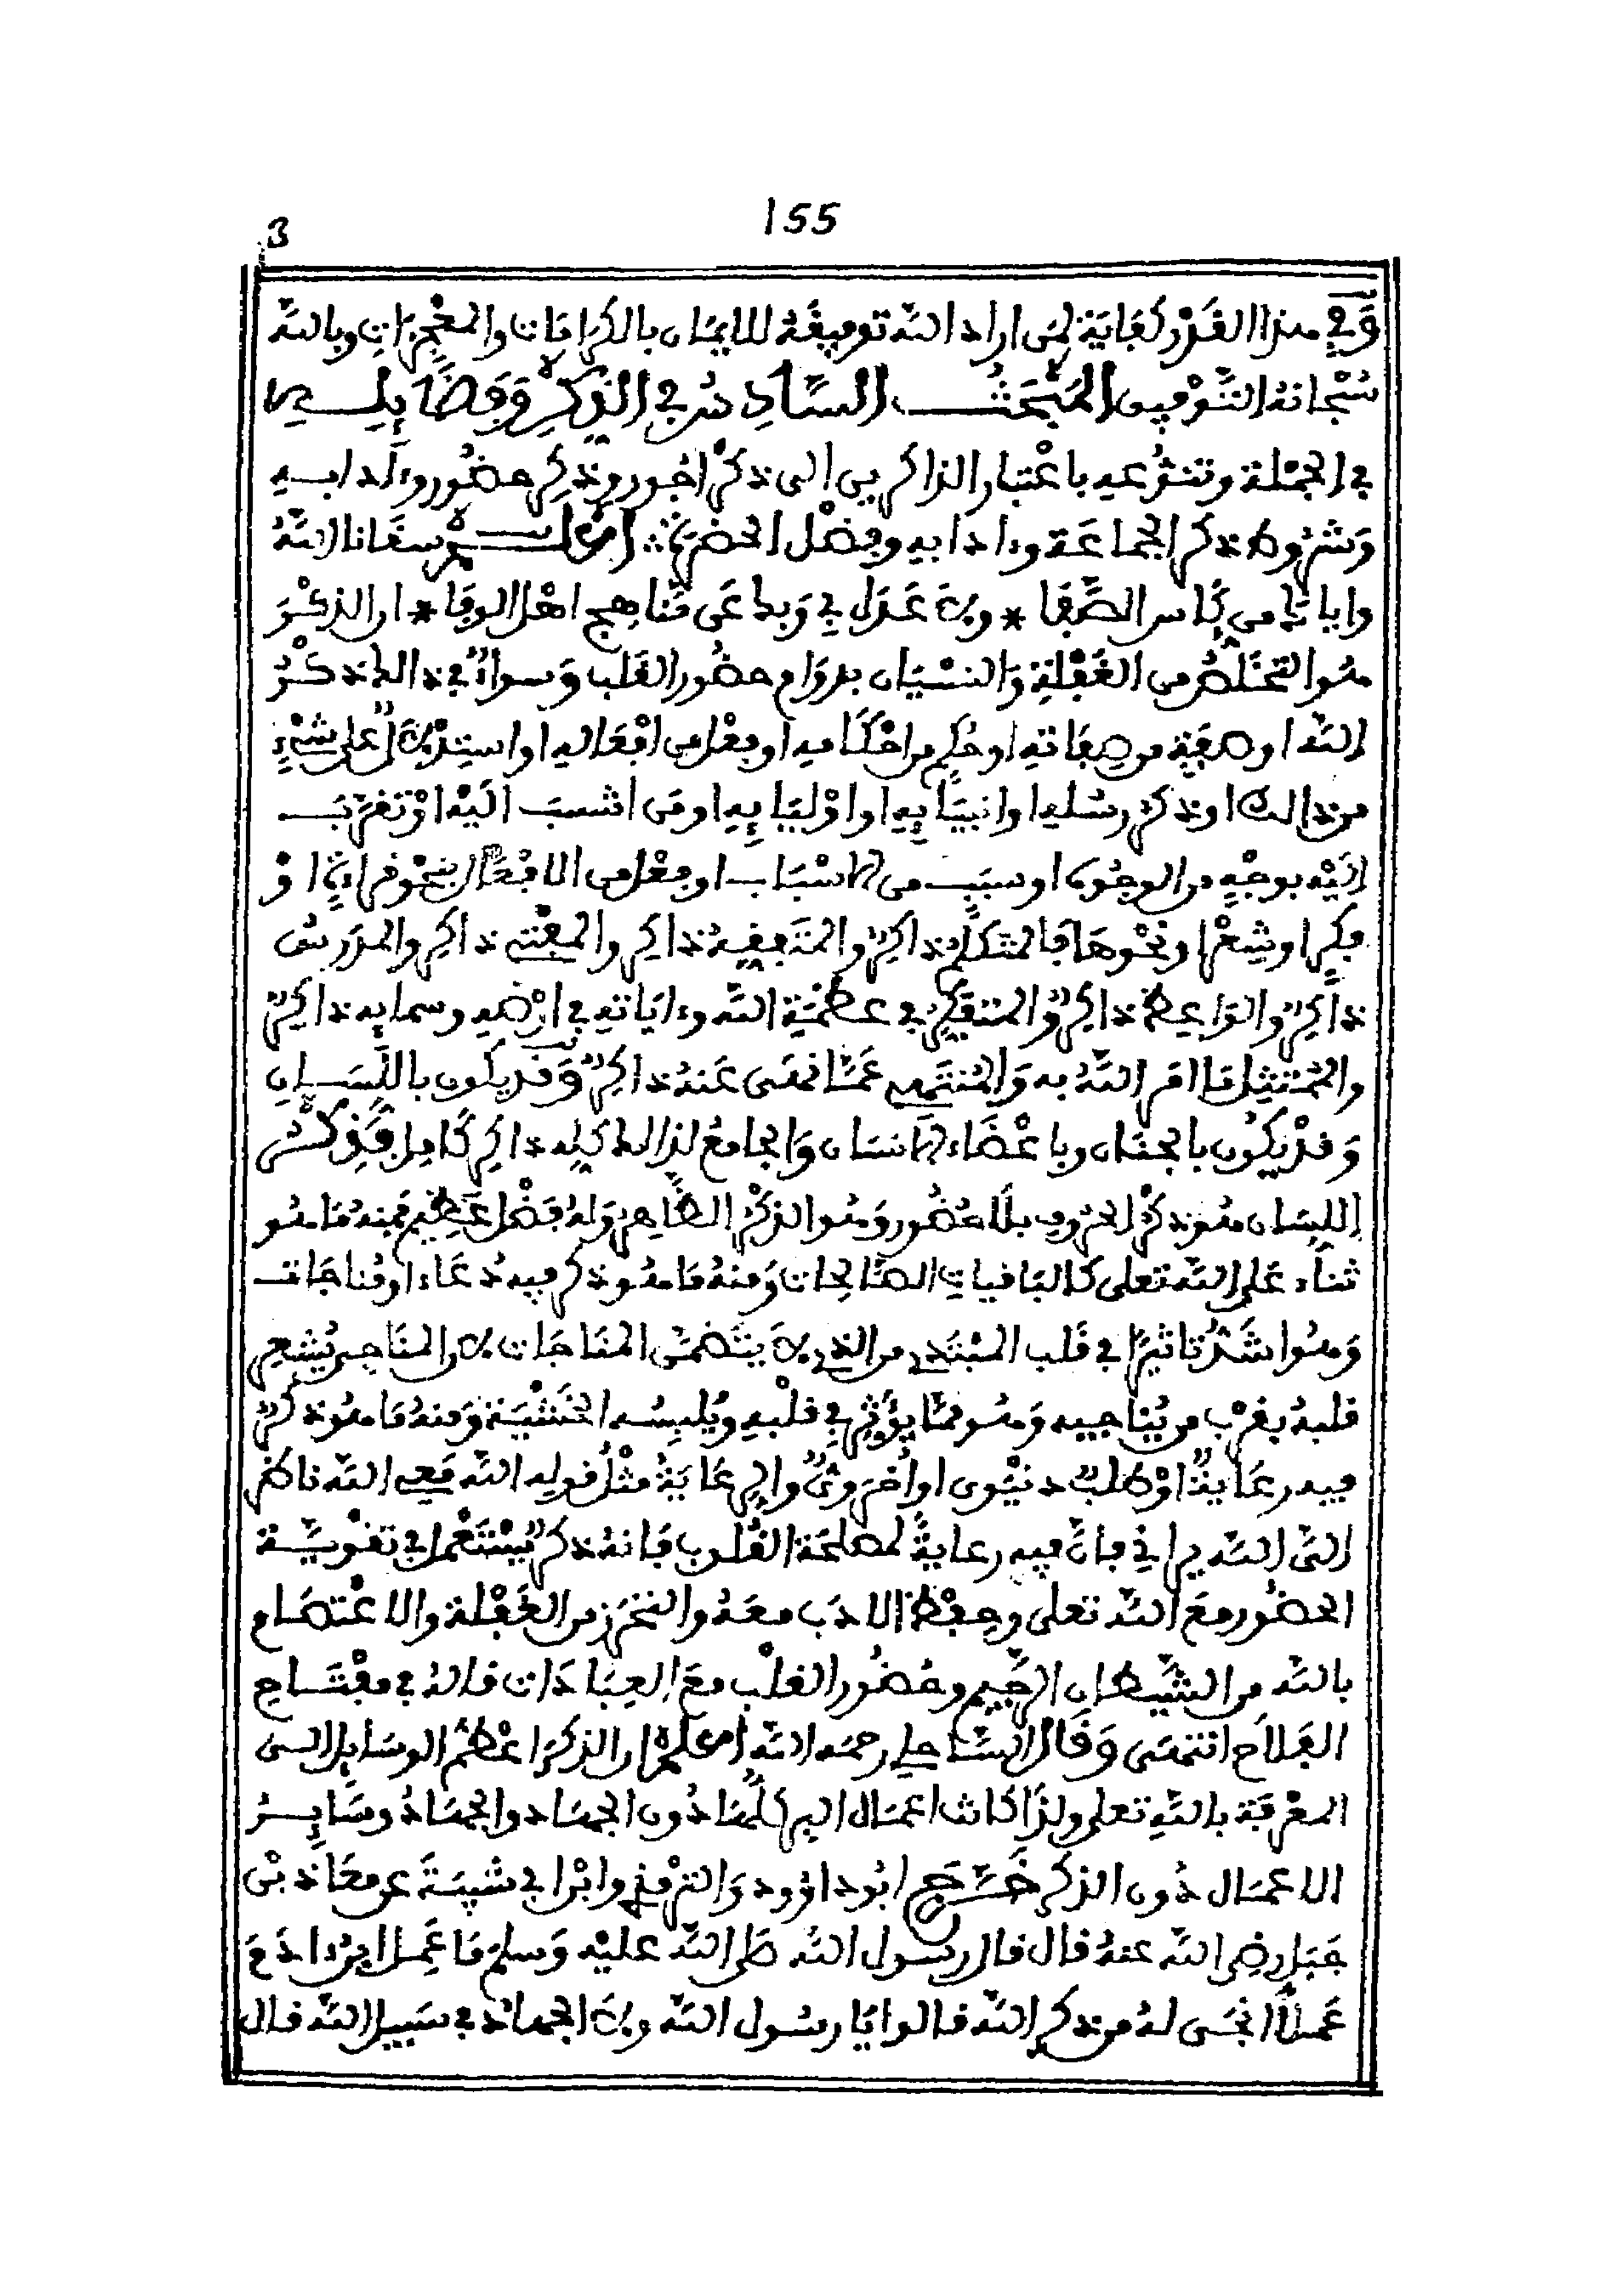 155
3
وَفِي هذا القَدْر كفاية لمن اراد الله توفيقَهُ للايمان بالكرامات والمعْجِزاتِ وبالله
سُبْحانهُ التَّوْفِيق المَبْحَثُ السَّادِسُ في الذِّكْرِ وَفَضَائِلِهِ
في الجُمْلة وتنوُّعِهِ باعْتبار الذاكرين الى ذكْرِ اجُور وذِكرِ حضُور وءادابِهِ
وَشرُوط ذكر الجماعَة وءادابِهِ وفضْل الحضرة اعْلَمْ سقَانا اللهُ
واياكَ من كَاس الصَّفَا * ولا عَدَلَ بِي وَبِكَ عَن مَناهِج اهْل الوفَا * ان الذِكْرَ
هُوا لتَّخَلُّصُ من الغَفْلَةِ وَالنسْيَان بدوَام حضُور القَلب وَسواءٌ في ذالك ذكْرُ
اللهِ اوصفَةٍ من صِفَاتهِ اوحُكمٍ من احْكَامه اوفعْل من افْعَالهِ اواستِدْلاَلٌ على شيْءٍ
من ذالك اوذكرُ رسُله اوانبيَائِهِ اواوْليَائِهِ اومَن انتسبَ اليْه اوْتقرَّبَ
اِلَيْه بوجْهٍ من الوجُوه اوسبَبٍ من الاسْبَاب اوفعْل من الافْعَال بنحْو قراءة اوْ
فكرٍ اوشِعْر اونحْوهَا فالمتكلمُ ذاكرٌ والمتَفقِهُ ذاكِر والمفْتي ذاكِر والمدَرسُ
ذاكِرٌ والوَاعِظ ذاكِرٌ والمتفَكِّرُ في عظمَةِ الله وءايَاتهِ في ارْضهِ وسمائِه ذاكِرٌ
والمُمْتثِل مَا امَر اللهُ به وَالمُنتَهِي عَمَّا نهَى عَنهُ ذاكِرٌ وَقَدْ يكون باللِّسَانِ
وَقدْ يكُون بالجنَان وباعْضَاء الانسَان وَالجامعُ لذالك كلِه ذاكر كَامِل فَذِكْرُ
اللِسَان هُو ذكرُ الحُرُوفِ بلاَ حُضُور وَهُوا لذكْرُ الظَّاهِرُ وَلهُ فَضْل عَظِيم فمنهُ مَا هُو
ثنَاء عَلى الله تعلى كالبَاقيات الصَّالحات وَمنهُ مَا هُو ذكر فيه دُعَاء اومُناجَات
وَهُوا شَدُّ تاثيرًا في قَلب المبْتَدي من الذي لاَ يتَضمَّن المناجَات لان المنَاجِي يُشعِر
قلبهُ بقرْب من يُنَاجيه وَهُو ممَّا يؤَثِر في قلْبهِ ويُلبِسُه الخَشْيَة وَمنهُ مَا هُو ذكرٌ
فيه رعَايةٌ اوْطلبٌ دنيَوِي اواُخرَوِيٌّ والرِعَايَةُ مثْلُ قولِه اللّه مَعِي اللّه ناظر
الىّ اللّه يراني فانّ فيه رعايةً لمصلحَة القُلوبِ فانهُ ذكرٌ يُسْتَعْمل في تقْويَّة
الحضُور معَ اللّه تعلى وحِفْظ الادَب معَهُ والتحَرّز من الغَفْلة والاعْتصَام
باللّه من الشيْطان الرّجِيم وحُضُور القلْب معَ العِبَادَات قالهُ في مفْتَاح
الفلاَح انتهَى وَقَال السَّاحلِي رحمه اللّه اعْلمْ ان الذكرَ اعْظمُ الوسَائِل الى
المعْرفة باللّهِ تعلى ولذَا كانت اعمَال البر كلّهَا دُون الجهَاد والجهَادُ وسَائِرُ
الاعمَال دُون الذكر خَرَّجَ ابُو داوُود وَالترْمذِي وابْن ابي شيبَةَ عن معَاذ بْن
جَبَلٍ رضِي اللّه عنهُ قال قال رسُول اللّه صَلى اللّه عليْه وَسلمَ مَا عَمِل ابنُ ءادَمَ
عَملاً انجَى لهُ من ذكر اللّه قالوا يَا رسُول اللّه ولاَ الجهادُ في سَبيل اللّه قال